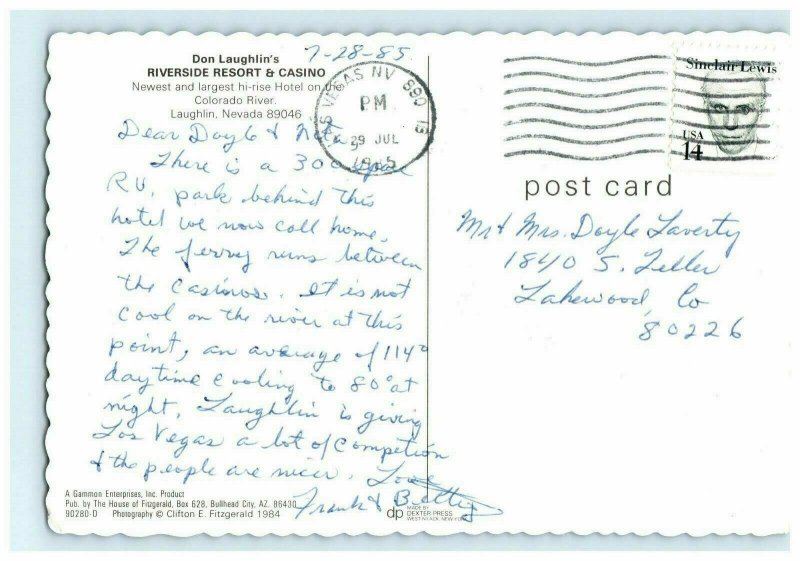 7-28-85
Don Laughlin's
RIVERSIDE RESORT & CASINO
Newest and largest hi-rise Hotel on the
Colorado River.
Laughlin, Nevada 89046
Dear Doyle & Neta,
There is a 300 space
RV. park behind this
hotel we now call home.
The ferry runs between
the Casinos. It is not
cool on the river at this
point, an average of 114°
daytime cooling to 80° at
night. Laughlin is giving
Los Vegas a lot of competion
& the people are nicer. Love
Frank & Betty
A Gammon Enterprises, Inc. Product
Pub. by The House of Fitzgerald, Box 628, Bullhead City, AZ. 86430
90280-D Photography © Clifton E. Fitzgerald 1984
dp MADE BY
DEXTER PRESS
WEST NYACK, NEW YORK
VEGAS NV 890
PM
29 JUL
1985
Sinclair Lewis
USA
14
post card
Mr & Mrs. Doyle Laverty
1840 S. Teller
Lakewood, Co
80226